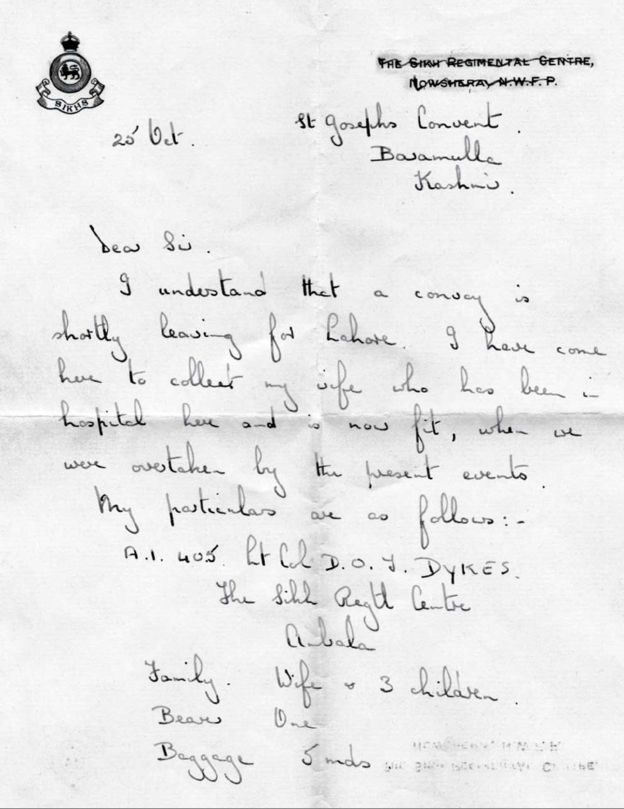 SIKHS
THE SIKH REGIMENTAL CENTRE,
NOWSHERA, N.W.F.P.
25 Oct.
St Josephs Convent.
Baramulla
Kashmir.
Dear Sir.
I understand that a convoy is
shortly leaving for Lahore. I have come
here to collect my wife who has been in
hospital here and is now fit, when we
were overtaken by the present events.
My particulars are as follows:-
A.I. 405. Lt Col D.O.T. DYKES.
The Sikh Regtl Centre
Ambala
Family. Wife & 3 children.
Bearer One
Baggage 5 mds